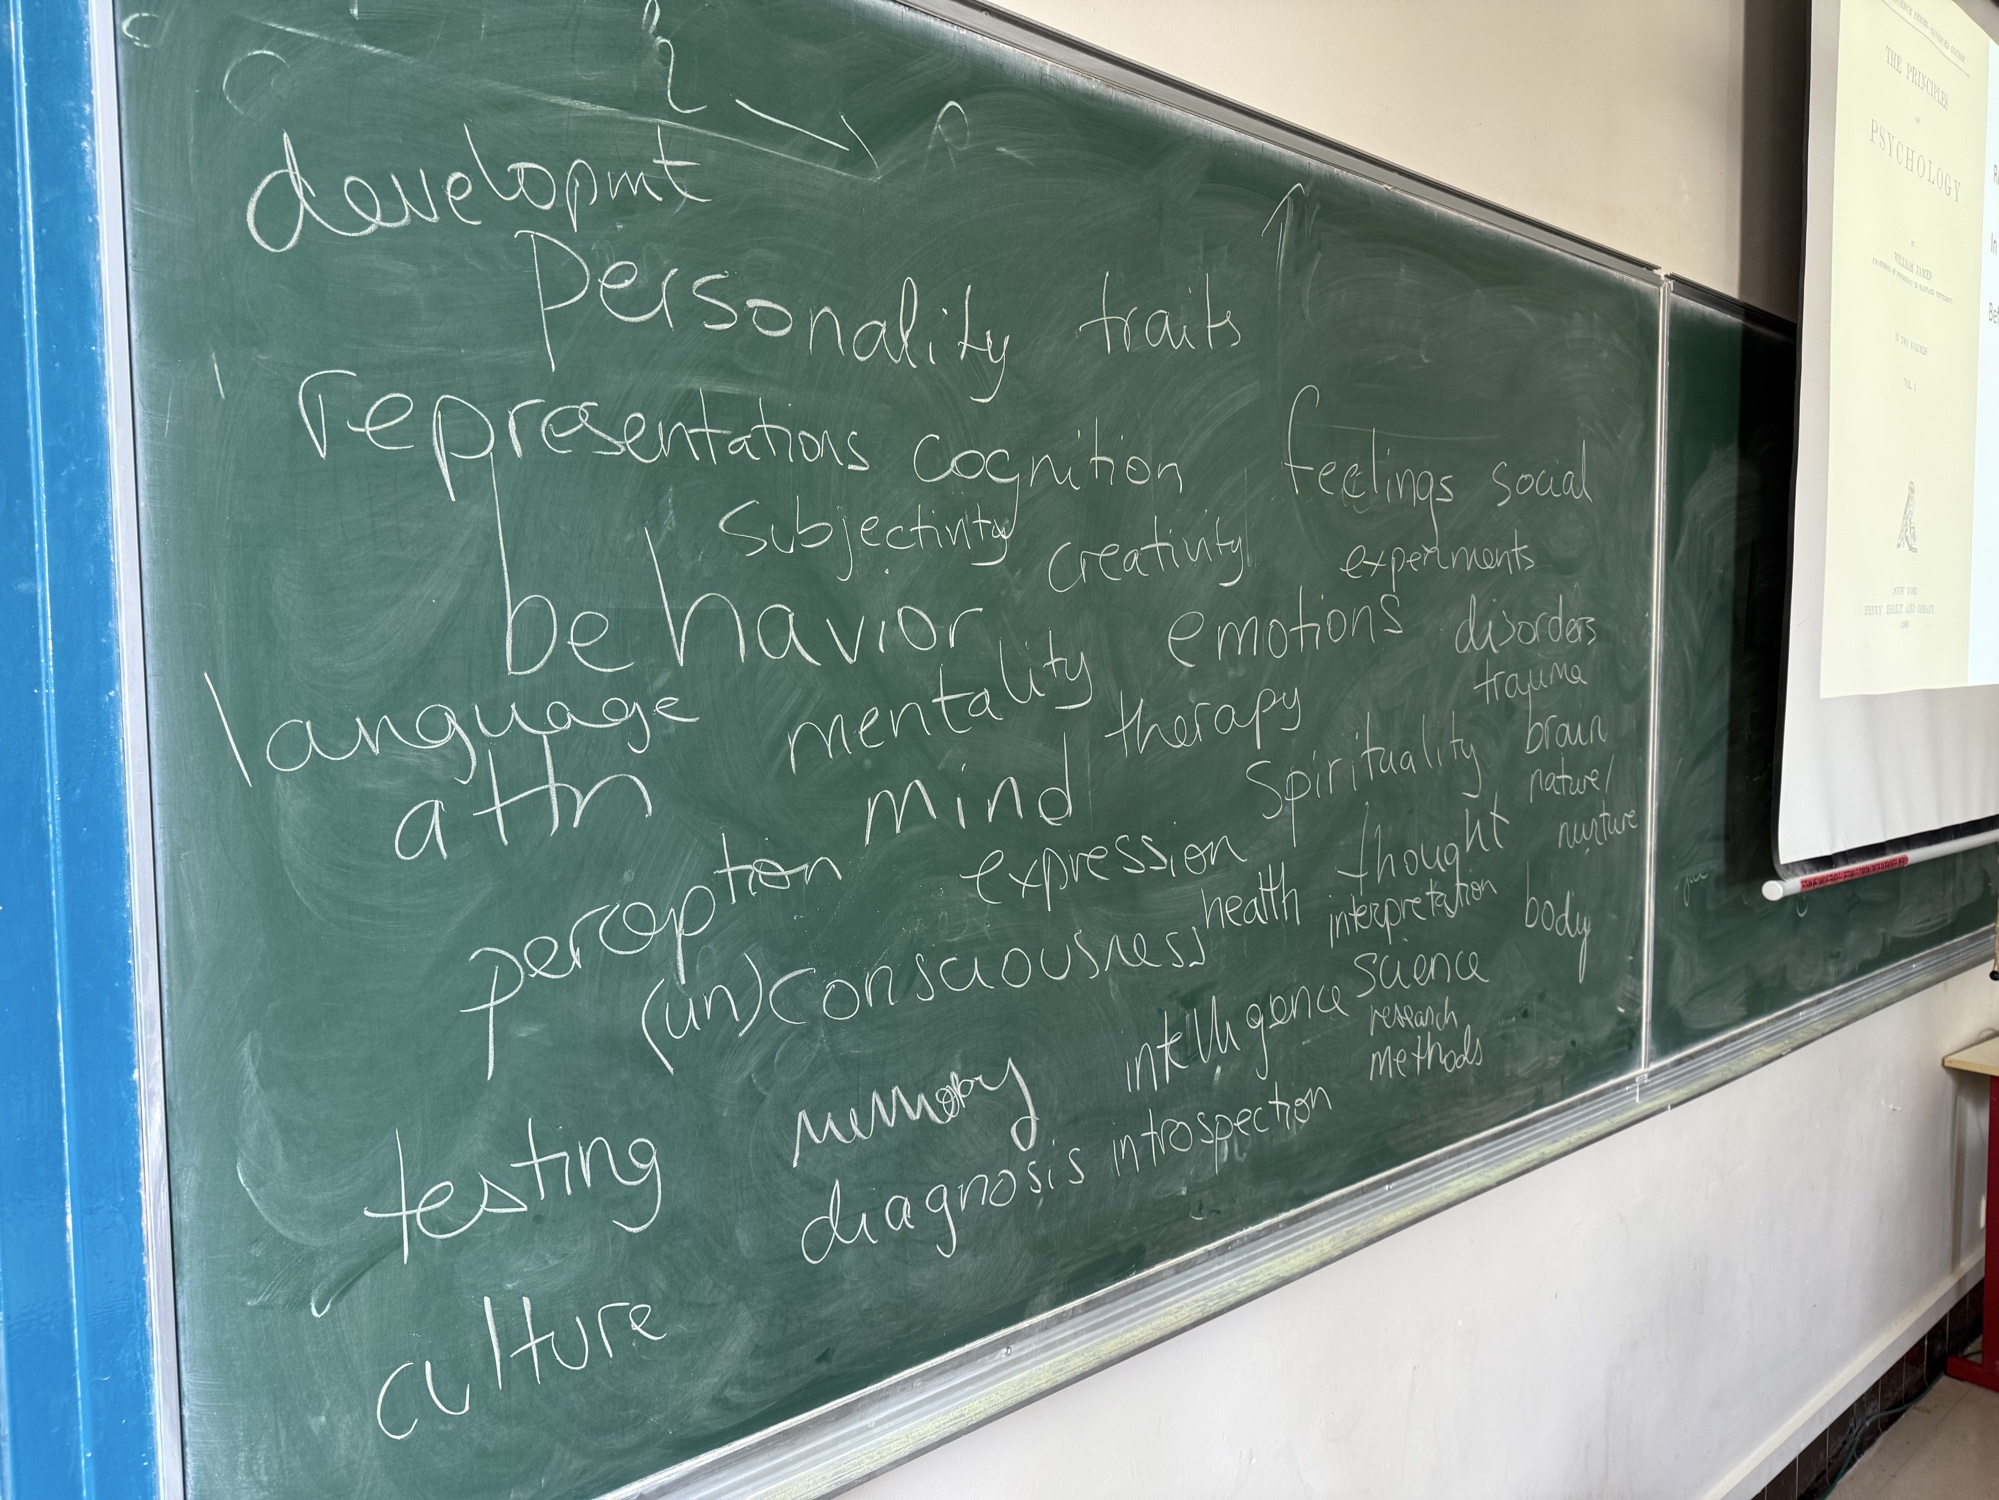 developmt
personality traits
representations cognition feelings social
subjectivity creativity experiments
behavior emotions disorders
language mentality therapy trauma
attn mind spirituality brain
nature/
nurture
perception expression thought
(un)consciousness health interpretation body
testing memory intelligence science
research
methods
diagnosis introspection
culture
THE PRINCIPLES
OF
PSYCHOLOGY
BY
WILLIAM JAMES
PROFESSOR OF PSYCHOLOGY IN HARVARD UNIVERSITY
IN TWO VOLUMES
VOL. I
NEW YORK
HENRY HOLT AND COMPANY
In